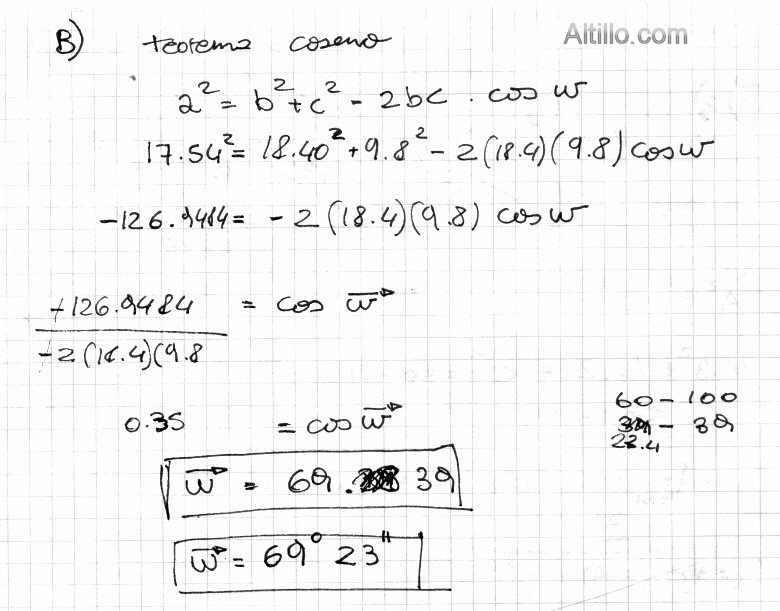 B) teorema coseno
Altillo.com
a² = b² + c² - 2bc . cos w
17.54² = 18.40² + 9.8² - 2(18.4)(9.8) cos w
-126.9484 = -2(18.4)(9.8) cos w
-126.9484 / -2(18.4)(9.8 = cos w⃗
0.35 = cos w⃗
60 - 100
- 39
23.4
w⃗ = 69. 39
w⃗ = 69° 23"